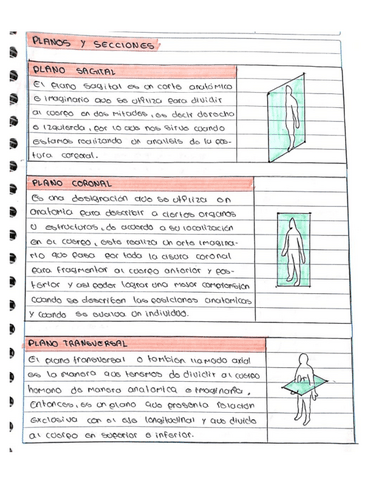 PLANOS Y SECCIONES
PLANO SAGITAL
El plano sagital es un corte anatómico
e imaginario que se utiliza para dividir
al cuerpo en dos mitades, es decir derecha
e izquierda, por lo que nos sirve cuando
estamos realizando un analisis de la pos-
tura corporal.
PLANO CORONAL
Es una designación que se utiliza en
anatomía para describir a ciertos organos
u estructuras, de acuerdo a su localización
en el cuerpo, este realiza un corte imagina-
rio que pasa por toda la cisura coronal
para fragmentar al cuerpo anterior y pos-
terior y así poder lograr una mejor comprensión
cuando se describen las posiciones anatomicas
y cuando se evalua un individuo.
PLANO TRANSVERSAL
El plano transversal o tambien llamado axial
es la manera que tenemos de dividir al cuerpo
humano de manera anatomica e imaginaria,
Entonces, es un plano que presenta relación
exclusiva con el eje longitudinal y que divide
al cuerpo en superior e inferior.